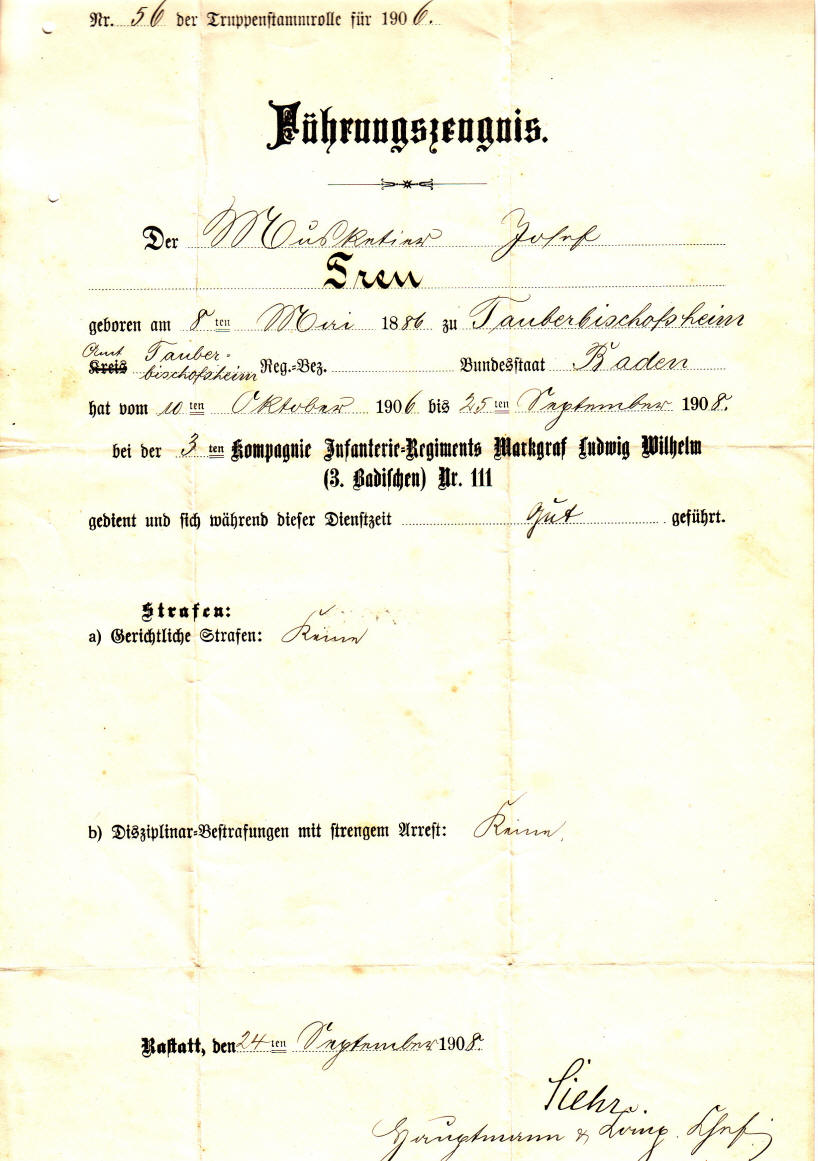 Nr. 56 der Truppenstammrolle für 1906.
Führungszeugnis.
Der Musketier Josef
geboren am 8ten Mai 1886 zu Tauberbischofsheim
Amt Tauber-
Kreis bischofsheim Reg.-Bez. Bundesstaat Baden
hat vom 10ten Oktober 1906 bis 25ten September 1908.
bei der 3ten Kompagnie Infanterie-Regiments Markgraf Ludwig Wilhelm
(3. Badischen) Nr. 111
gedient und sich während dieser Dienstzeit gut geführt.
Strafen:
a) Gerichtliche Strafen: Keine
b) Disziplinar-Bestrafungen mit strengem Arrest: Keine.
Rastatt, den 24ten September 1908.
Siehr.
Hauptmann & Komp. Chef.